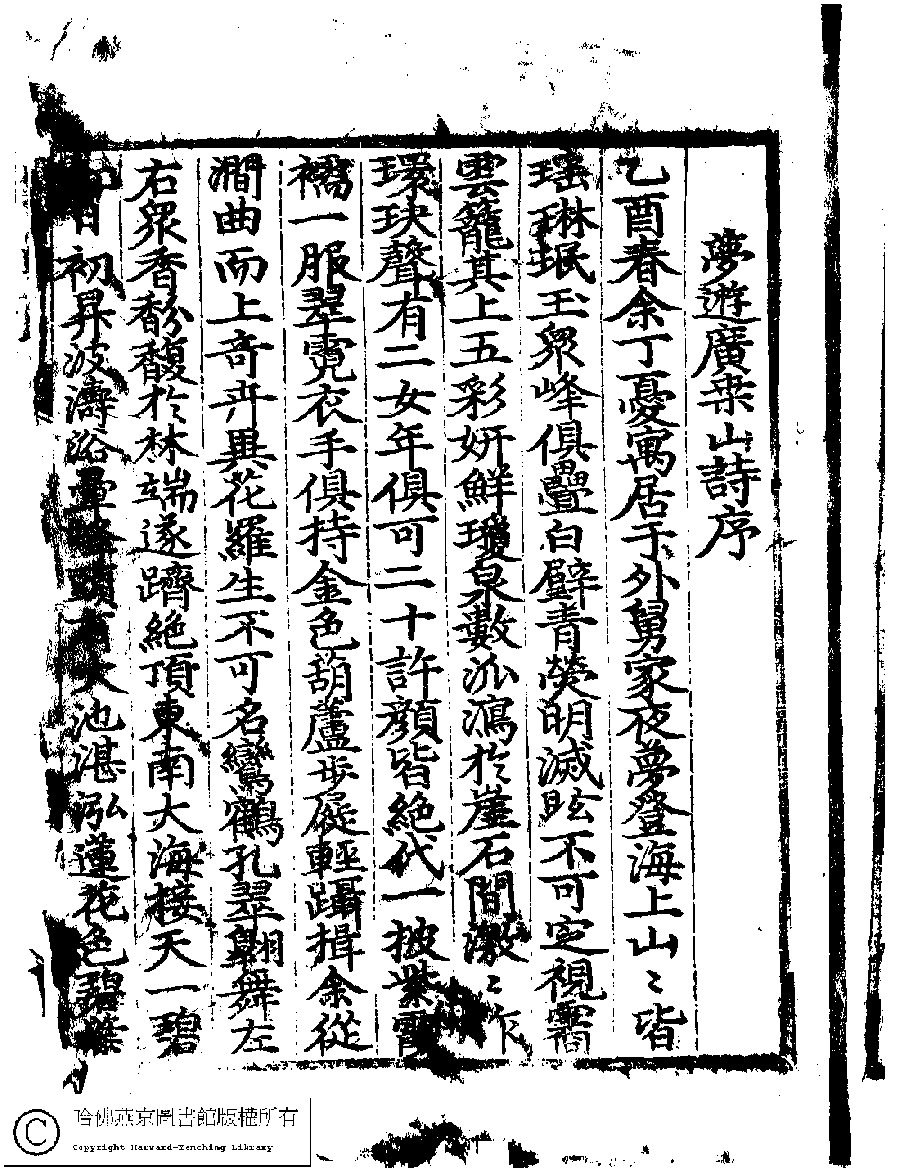 夢遊廣桒山詩序
乙酉春余丁憂寓居于外舅家夜夢登海上山〻皆
瑤琳珉玉衆峰俱疊白璧青熒明滅眩不可定視霱
雲籠其上五彩妍鮮瓊泉數派瀉於崖石間激〻作
環玦聲有二女年俱可二十許顔皆絶代一披紫霞
襦一服翠霓衣手俱持金色葫蘆步屣輕躡揖余從
澗曲而上奇卉異花羅生不可名鸞鶴孔翠翱舞左
右衆香馚馥於林端遂躋絶頂東南大海接天一碧
日初昇波濤浴暈峰頭有大池湛泓蓮花色碧葉
哈佛燕京圖書館版權所有
Copyright Harvard-Yenching Library